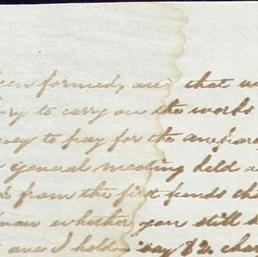 een formed, and that w
ry to carry on the works
to pay for the
general meeting held a
from the first funds tha
know whether you still h
one I holding say 82 cha